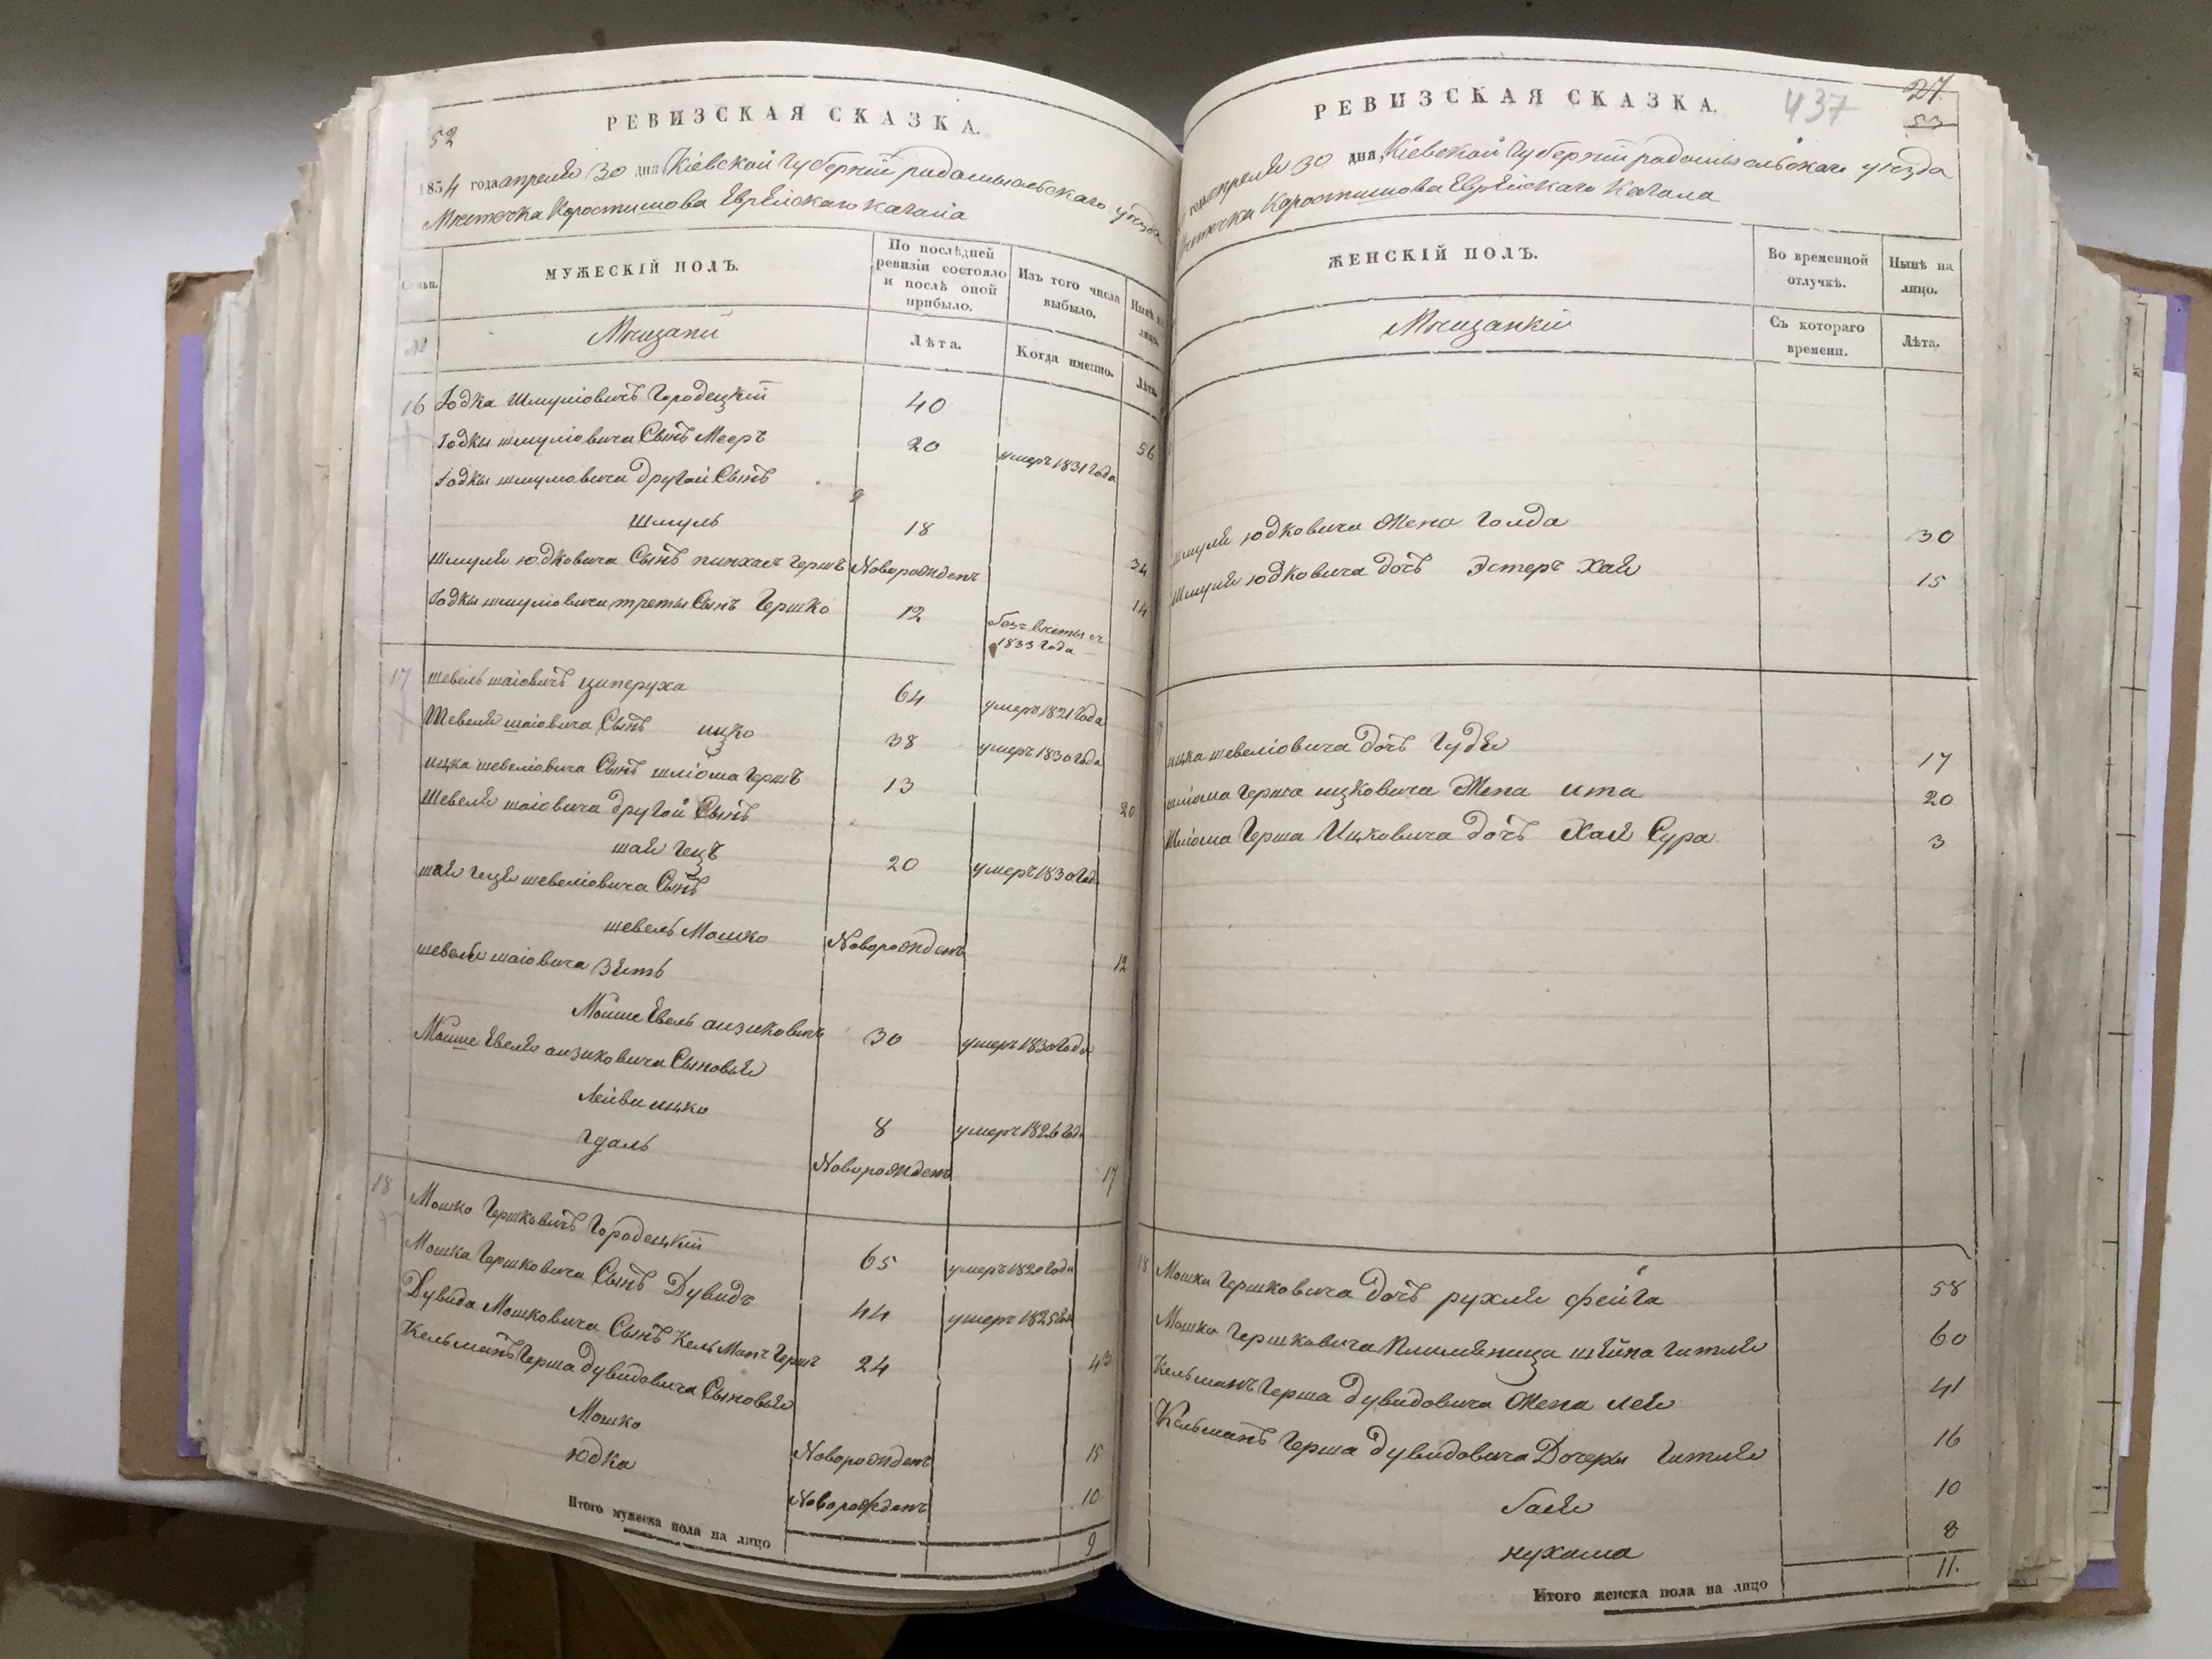 52
РЕВИЗСКАЯ СКАЗКА.
1834 года апреля 30 дня Кіевской Губерніи радомысльского уезда
Местечка Коростишова Еврейского кагала
Семьи.
МУЖЕСКІЙ ПОЛЪ.
По послѣдней ревизіи состояло и послѣ оной прибыло.
Изъ того числа выбыло.
Нынѣ на лицо.
№
Мещане
Лѣта.
Когда именно.
Лѣта.
16 Іодка Шмуліовичъ Городецкій 40 56
Іодки шмуліовича Сынъ Мееръ 20 умеръ 1831 года
Іодки шмуліовича другой Сынъ
Шмуль 18 34
Шмуля юдковича Сынъ пинхасъ Гершъ Новорожденъ 14
Іодки шмуліовича трети Сынъ Гершко 12 безъ вести съ 1833 Года
17 шевель шаіовичъ циперуха 64 умеръ 1821 Года
Шевеля шаіовича Сынъ ицко 38 умеръ 1830 года
ицка шевеліовича Сынъ шліома Гершъ 13 20
Шевеля шаіовича другой Сынъ
шая Гецъ 20 умеръ 1830 Года
шая Геця шевеліовича Сынъ
шевель Мошко Новорожденъ 12
шевеля шаіовича Зять
Мойше Евель аизиковичъ 30 умеръ 1830 Года
Мойше Евеля аизиковича Сыновья
Лейви ицко 8 умеръ 1826 Года
Гдаль Новорожденъ 17
18 Мошко Гершковичъ Городецкій 65 умеръ 1820 Года
Мошка Гершковича Сынъ Дувидъ 44 умеръ 1825 Года
Дувида Мошковича Сынъ КельМанъ Гершъ 24 40
Кельманъ Герша Дувидовича Сыновья
Мошко Новорожденъ 15
юдка Новорожденъ 10
Итого мужеска пола на лицо 9
РЕВИЗСКАЯ СКАЗКА.
437
27
53
года апреля 30 дня Кіевской Губерніи радомысльского уезда
местечка Коростишова Еврейскаго Кагала
ЖЕНСКІЙ ПОЛЪ.
Во временной отлучкѣ.
Нынѣ на лицо.
Мещанки
Съ котораго времени.
Лѣта.
Шмуля юдковича Жена Голда 30
Шмуля юдковича дочь Эстеръ Хая 15
ицка шевеліовича дочь Гудя 17
шліома Герша ицковича Жена ита 20
Шліома Герша Ицковича дочь Хая Сура 3
18 Мошка Гершковича дочъ рухля фейга 58
Мошка Гершковича Племяница шейна Гитля 60
Кельманъ Герша Дувидовича Жена лея 41
Кельманъ Герша Дувидовича Дочеры Гитля 16
бася 10
нухама 8
Итого женска пола на лицо 11.